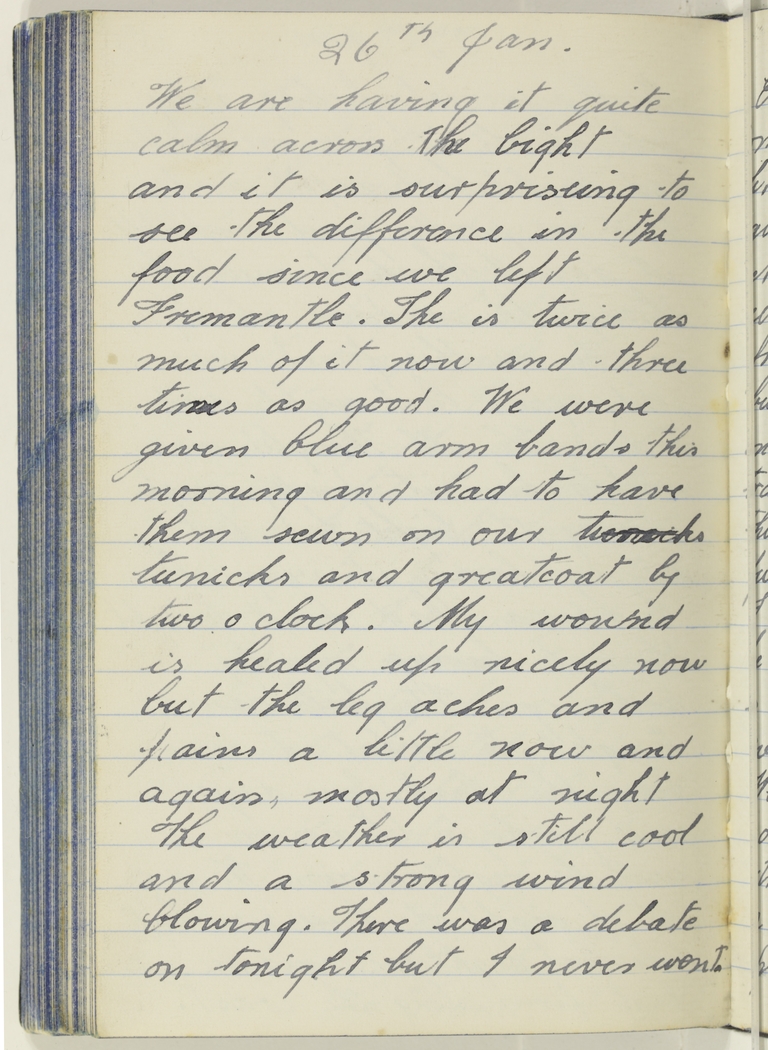 26th Jan.
We are having it quite
calm across the bight
and it is surpriseing to
see the difference in the
food since we left
Fremantle. The is twice as
much of it now and three
times as good. We were
given blue arm bands this
morning and had to have
them sewn on our tunicks
tunicks and greatcoat by
two o clock. My wound
is healed up nicely now
but the leg aches and
pains a little now and
again, mostly at night
The weather is still cool
and a strong wind
blowing. There was a debate
on tonight but I never went